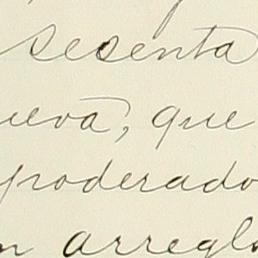 sesenta
ueva, que
poderado
n arreglo